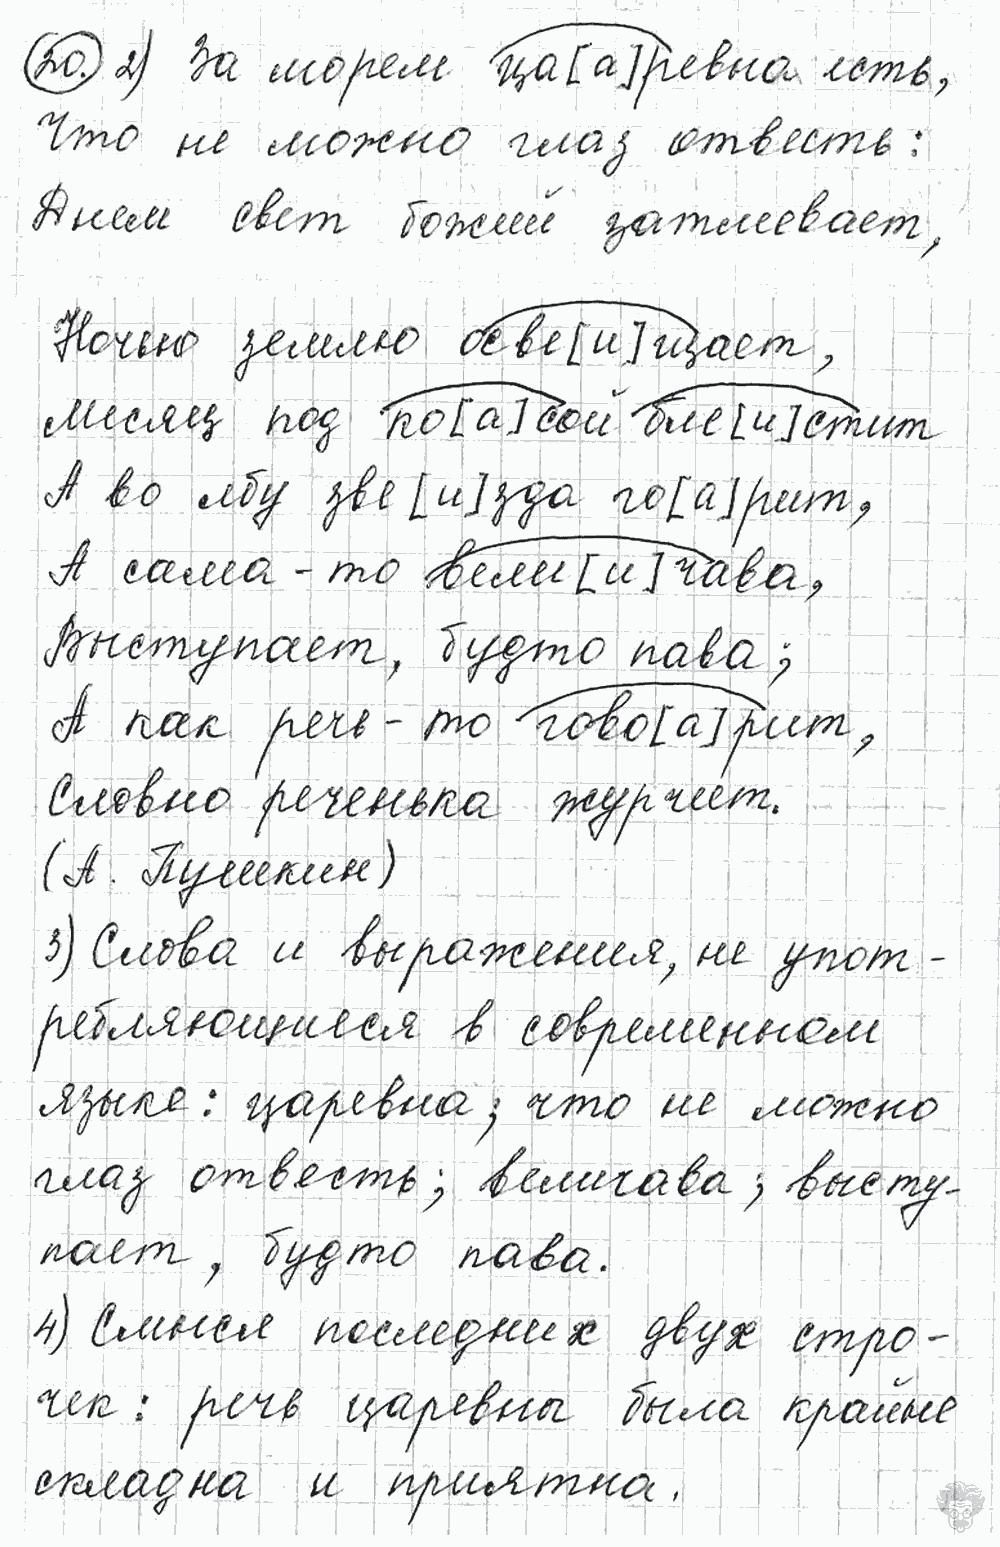 20. 2) За морем ца[а]ревна есть,
Что не можно глаз отвесть:
Днем свет божий затмевает,
Ночью землю осве[и]щает,
Месяц под ко[а]сой бле[и]стит
А во лбу зве[и]зда го[а]рит,
А сама-то вели[и]чава,
Выступает, будто пава;
А как речь-то гово[а]рит,
Словно реченька журчит.
(А. Пушкин)
3) Слова и выражения, не упот-
ребляющиеся в современном
языке: царевна; что не можно
глаз отвесть; величава; высту-
пает, будто пава.
4) Смысл последних двух стро-
чек: речь царевны была крайне
складна и приятна.